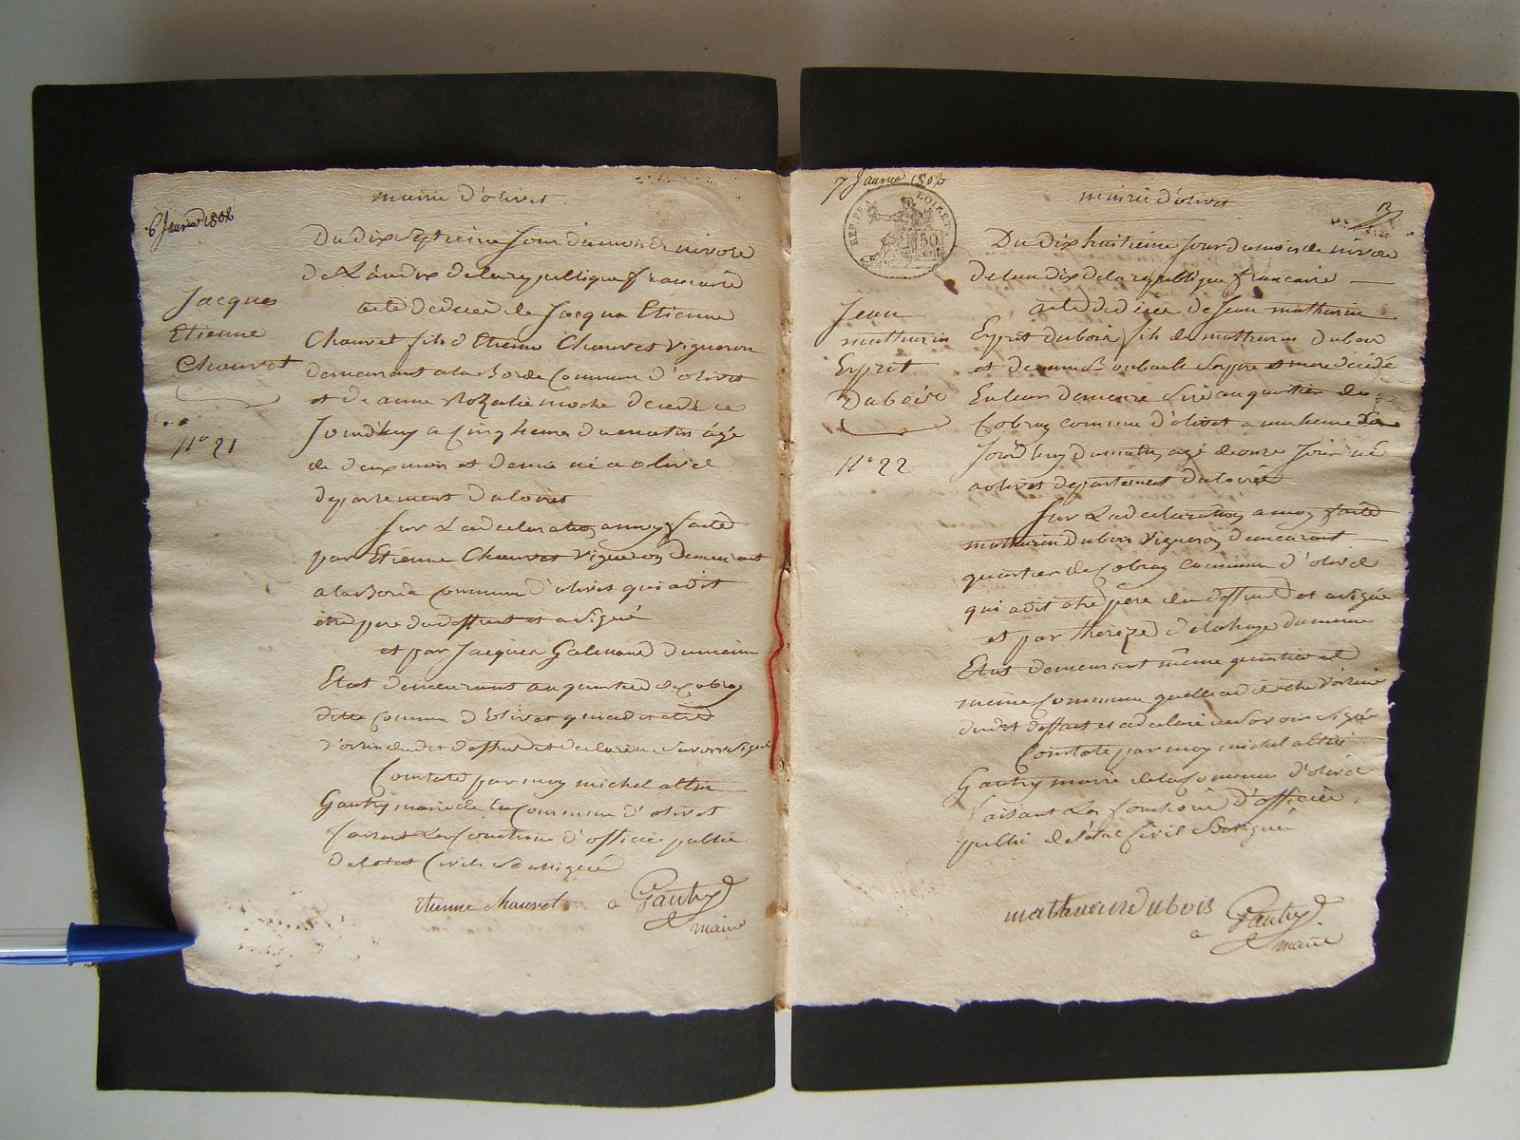 mairie d'olivet
6 Janvier 1802
Du dix septieme jour du mois de nivose
de L'an dix de la republique francaise
acte de deces de Jacque Etienne
Chauvet fils d'Etienne Chauvet vigneron
demeurant a la Borde commune d'olivet
et de anne Rozalie decedé ce
Jourd'huy a cinq heures du matin âgé
de deux mois et demie né a olivet
departement du loiret
Sur La declaration a moy faite
par Etienne Chauvet vigneron demeurant
a la Borde commune d'olivet qui a dit
etre pere du deffunt et a signé
et par Jacques Galmand du meme
Etat demeurant au quartier de Cobray
ditte commune d'olivet qui a dit etre
voisin dudit deffunt et declare ne savoir signé
Constaté par moy michel altin
Gautry maire de la Commune d'olivet
faisant Les fonctions d'officier public
de l'etat Civil soussigné
etienne chauvet Gautry
maire
Jacques
Etienne
Chauvet
N° 21
7 Janvier 1802
mairie d'olivet
13
REP. FRA. LOIRET
50
Du dix huitieme jour du mois de nivose
de L'an dix de la republique francaise
acte de deces de Jean mathurin
Esprit dubois fils de mathurin dubois
et de ses pere et mere decédé
En leur demeure sise au quartier de
Cobray commune d'olivet a une heure de
Jourd'huy du matin agé de onze jours né
a olivet departement du loiret
Sur La declaration a moy faite
mathurin dubois vigneron demeurant
quartier de Cobray commune d'olivet
qui a dit etre pere du deffunt et a signé
et par thereze delahaye du meme
Etat demeurant même quartier et
même commune quelle a dit etre voisine
dudit deffunt et a declaré ne savoir signé
Constaté par moy michel altin
Gautry maire de la Commune d'olivet
faisant Les fonctions d'officier
public de l'état Civil Soussigné
mathurin dubois Gautry
maire
Jean
mathurin
Esprit
Dubois
N° 22